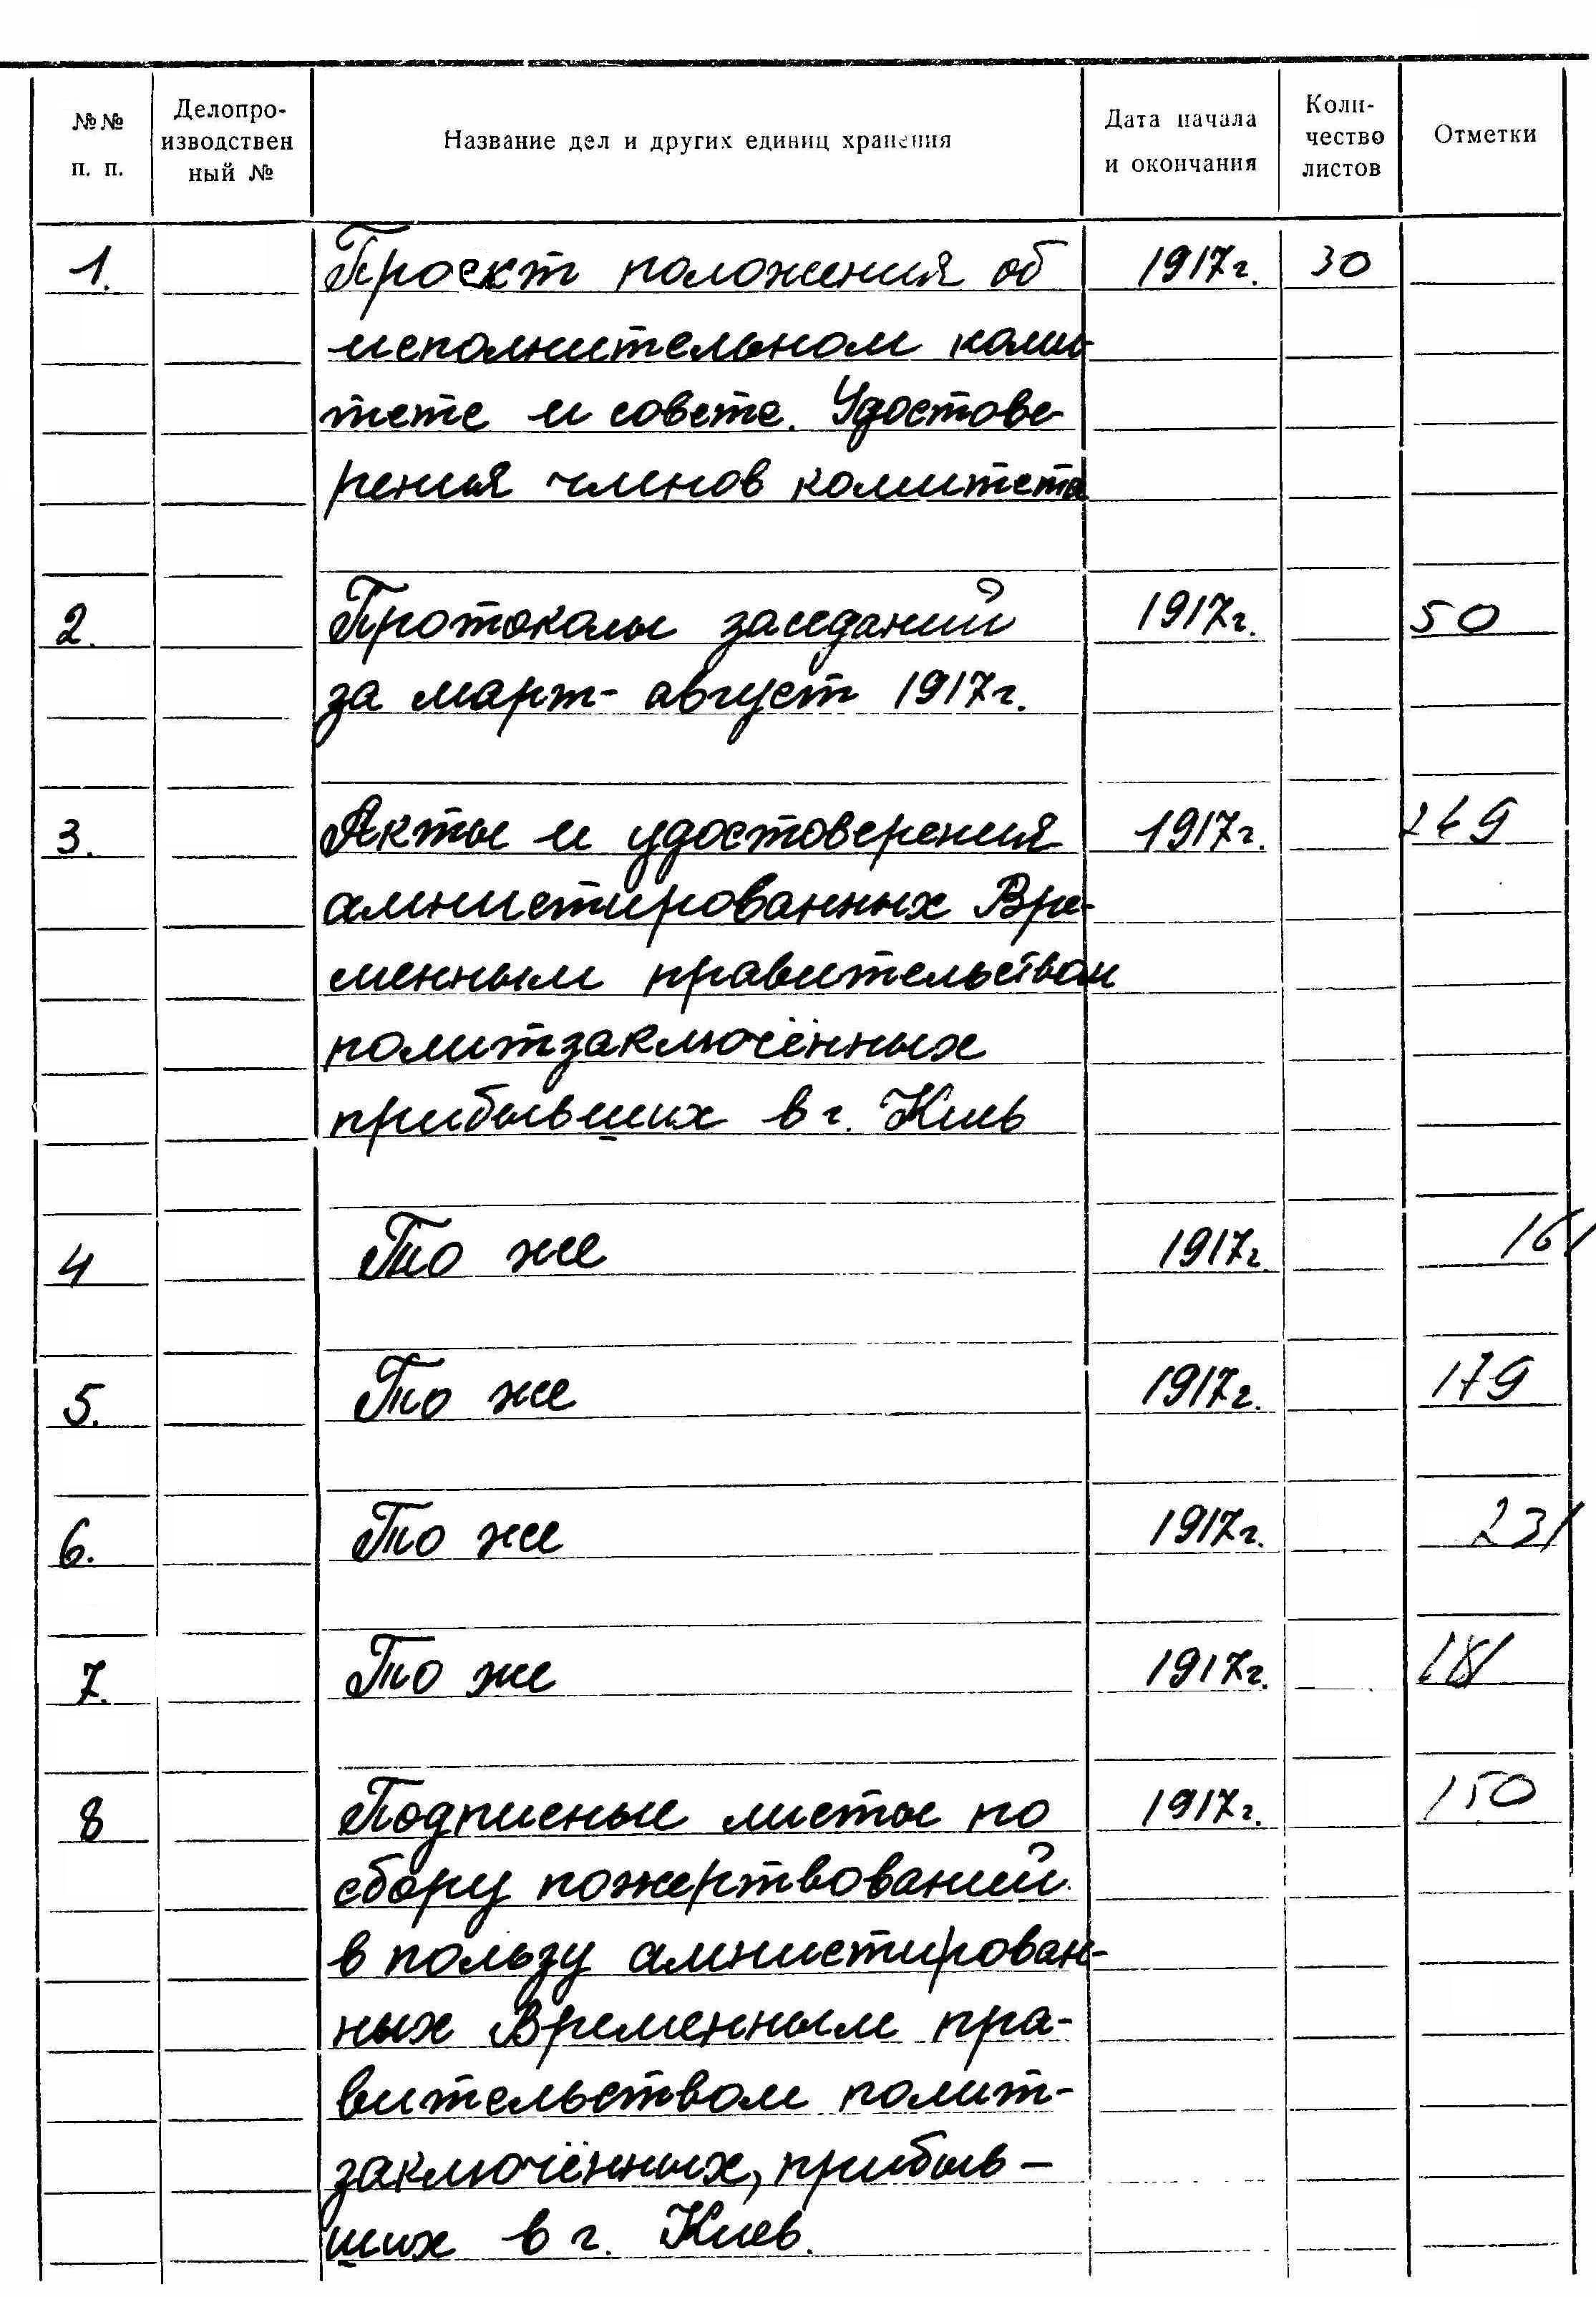 №№ п. п. Делопро- изводствен ный № Название дел и других единиц хранения Дата начала и окончания Коли- чество листов Отметки
1. Проект положения об 1917г. 30
исполнительном коми-
тете и совете. Удостове-
рения членов комитета
2. Протоколы заседаний 1917г. 50
за март- август 1917г.
3. Акты и удостоверения 1917г. 249
амнистированных Вре-
менным правительством
политзаключённых
прибывших в г. Киев
4 То же 1917г. 161
5. То же 1917г. 179
6. То же 1917г. 231
7. То же 1917г. 181
8 Подписные листы по 1917г. 150
сбору пожертвований
в пользу амнистирован-
ных Временным пра-
вительством полит-
заключённых, прибыв-
ших в г. Киев.